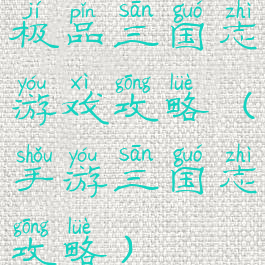 jí pǐn sān guó zhì
极品三国志
yóu xì gōng lüè
游戏攻略（
shǒu yóu sān guó zhì
手游三国志
gōng lüè
攻略）